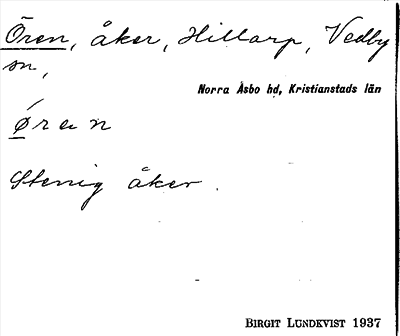 Ören, åker, Hillarp, Vedby
sn,
Norra Åsbo hd, Kristianstads län
Ǿren
Stenig åker.
BIRGIT LUNDKVIST 1937